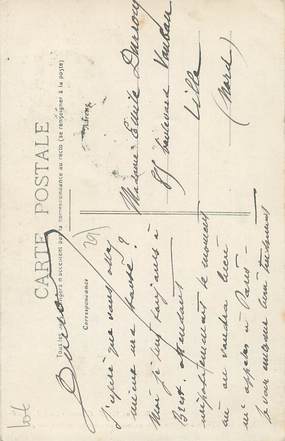 CARTE POSTALE
Tous les pays étrangers n'acceptent pas la correspondance au recto (se renseigner à la poste)
Correspondance
Adresse
J'espère que vous allez
même une
Moi je suis toujours à
Brest. Attendant
impatiemment le moment
où on voudra bien
m'appeler à Paris.
Je vous embrasse bien tendrement
Madame Emile
85 boulevard Vauban
Lille
(Nord)